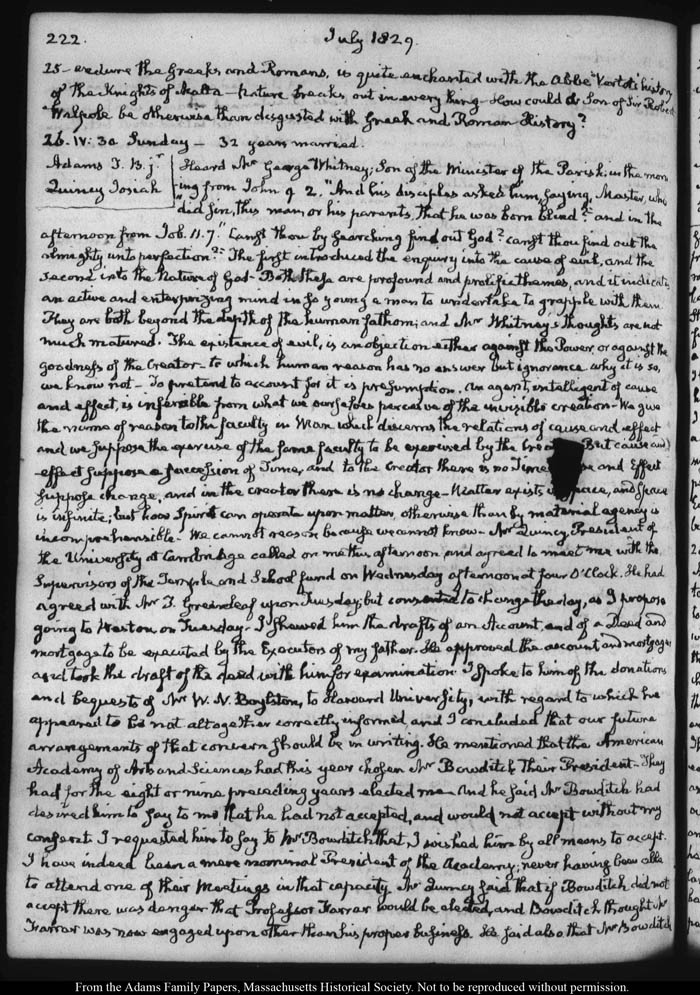 222.
July 1829.
25 – endure the Greeks and Romans, is quite enchanted with the Abbé Vertot's history
of the Knights of Malta – Nature breaks out in every thing – How could the Son of Sir Robert
Walpole be otherwise than disgusted with Greek and Roman History?
26. IV: 30 Sunday – 32 years married.
Adams T. B. jr
Quincy Josiah
Heard Mr George Whitney; Son of the Minister of the Parish; in the morn
ing from John 9 2. "And his disciples asked him, saying, Master, who
"did sin, this man, or his parents, that he was born blind?" and in the
afternoon from Job. 11.7. "Canst thou by searching find out God? canst thou find out the
Almighty unto perfection?" The first introduced the enquiry into the cause of evil, and the
second into the Nature of God – Both these are profound and prolific themes, and it indicates
an active and enterprizing mind in so young a man to undertake to grapple with them.
They are both beyond the depth of the human fathom; and Mr Whitney's thoughts are not
much matured. The existence of evil, is an objection either against the Power, or against the
goodness of the Creator – to which human reason has no answer but ignorance why it is so,
we know not – To pretend to account for it is presumption. An agent, intelligent of cause
and effect, is inferible from what we ourselves perceive of the invisible creation – We give
the name of reason to the faculty in Man which discerns the relations of cause and effect
and we suppose the exercise of the same faculty to be exercised by the But cause and
effect suppose a succession of Time, and to the Creator there is no Time and Effect
suppose change, and in the creator there is no change – Matter exists in space, and space
is infinite; but how Spirit can operate upon matter, otherwise than by material agency is
incomprehensible – We cannot reason because we cannot know – Mr Quincy, President of
the University at Cambridge called on me this afternoon and agreed to meet me with the
Supervisors of the Temple and School fund on Wednesday afternoon at four O'Clock. He had
agreed with Mr T. Greenleaf upon Tuesday; but consented to change the day, as I propose
going to Weston on Tuesday. I shewed him the drafts of an Account, and of a Deed and
mortgage to be executed by the Executors of my father. He approved the account and mortgage
and took the draft of the deed with him for examination. I spoke to him of the donations
and bequests of Mr W. N. Boylston, to Harvard University, with regard to which he
appeared to be not altogether correctly informed, and I concluded that our future
arrangements of that concern should be in writing. He mentioned that the American
Academy of Arts and Sciences had this year chosen Mr Bowditch their President – They
had for the eight or nine preceding years elected me. And he said Mr Bowditch had
desired him to say to me that he had not accepted, and would not accept without my
consent. I requested him to say to Mr Bowditch that, I wished him by all means to accept.
I have indeed been a mere nominal President of the Academy; never having been able
to attend one of their Meetings in that capacity. Mr Quincy said that if Bowditch did not
accept there was danger that Professor Farrar would be elected, and Bowditch thought Mr
Farrar was now engaged upon other than his proper business. He said also that Mr Bowditch
From the Adams Family Papers, Massachusetts Historical Society. Not to be reproduced without permission.